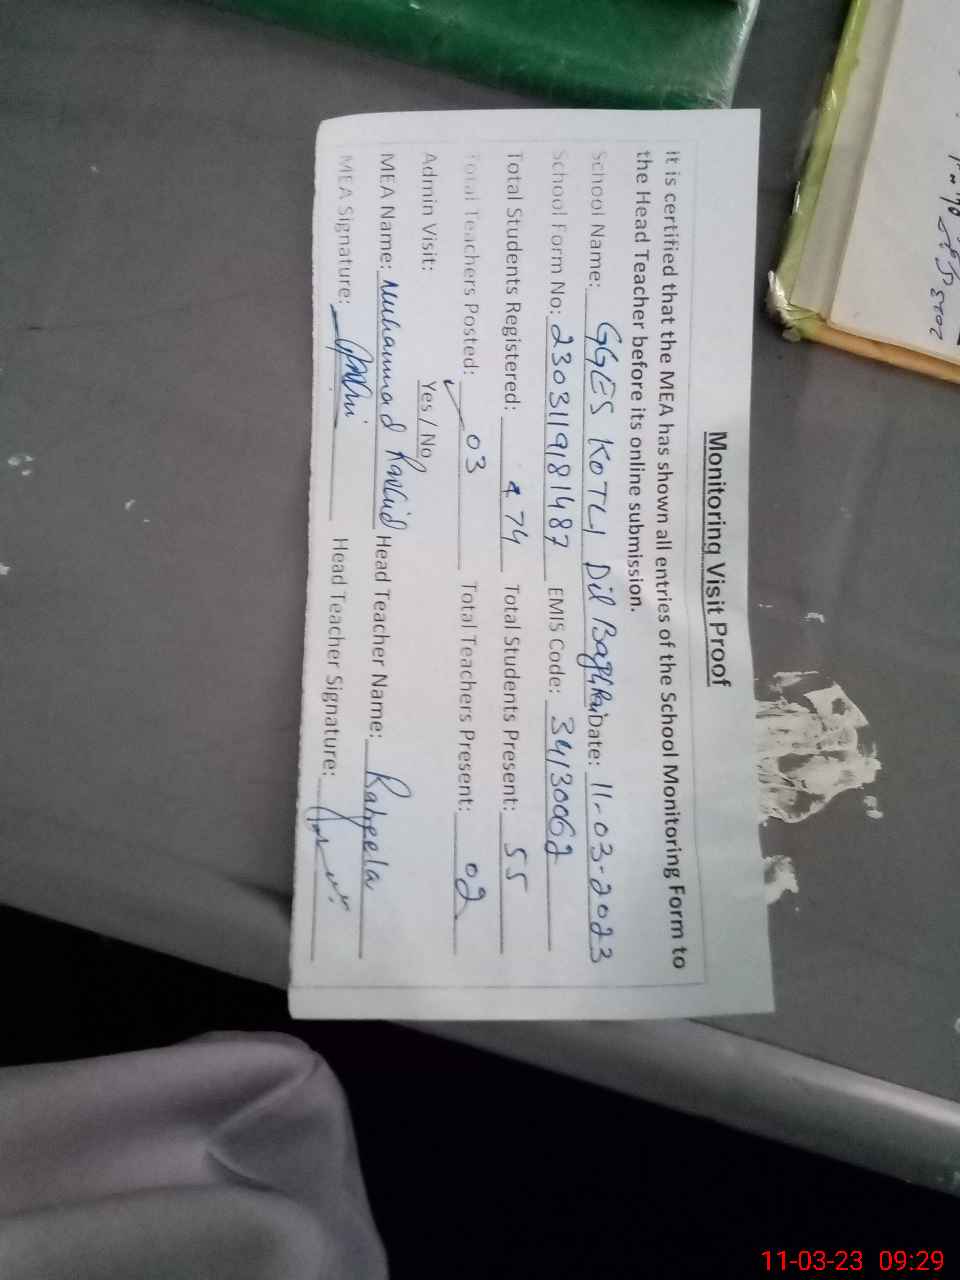 Monitoring Visit Proof
It is certified that the MEA has shown all entries of the School Monitoring Form to
the Head Teacher before its online submission.
School Name: GGES KOTLI Dil Bagh Rai Date: 11-03-2023
School Form No: 2303119181487 EMIS Code: 34130062
Total Students Registered: 74 Total Students Present: 55
Total Teachers Posted: 03 Total Teachers Present: 02
Admin Visit: Yes / No
MEA Name: Muhammad Rashid Head Teacher Name: Rabeela
MEA Signature: Head Teacher Signature:
11-03-23 09:29